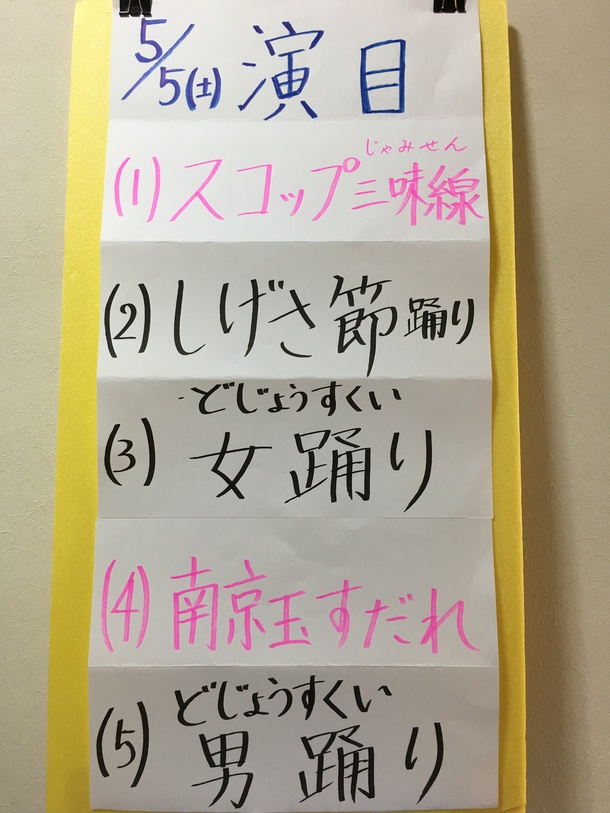 5/5(土) 演目
じゃみせん
(1)スコップ三味線
(2)しげさ節踊り
どじょうすくい
(3)女踊り
(4)南京玉すだれ
どじょうすくい
(5)男踊り